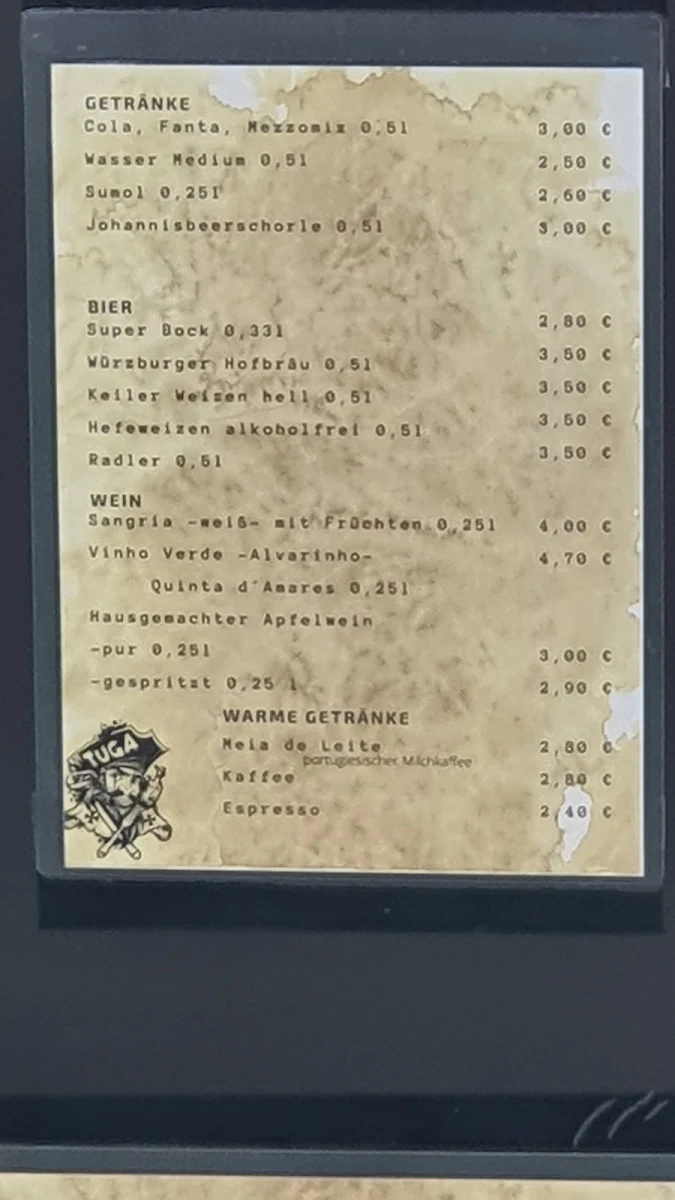 GETRÄNKE
Cola, Fanta, Mezzomix 0,5l 3,00 €
Wasser Medium 0,5l 2,50 €
Sumol 0,25l 2,60 €
Johannisbeerschorle 0,5l 3,00 €
BIER
Super Bock 0,33l 2,80 €
Würzburger Hofbräu 0,5l 3,50 €
Keiler Weizen hell 0,5l 3,50 €
Hefeweizen alkoholfrei 0,5l 3,50 €
Radler 0,5l 3,50 €
WEIN
Sangria -weiß- mit Früchten 0,25l 4,00 €
Vinho Verde -Alvarinho- 4,70 €
Quinta d´Amares 0,25l
Hausgemachter Apfelwein
-pur 0,25l 3,00 €
-gespritzt 0,25 l 2,90 €
WARME GETRÄNKE
Meia de Leite 2,80 €
portugiesischer Milchkaffee
Kaffee 2,80 €
Espresso 2,40 €
TUGA